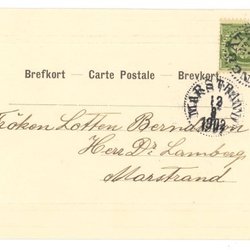 Brefkort — Carte Postale — Brevkort
MARSTRAND
12
1903
Fröken Lotten Berndtson
Herr Dr Lamberg
Marstrand